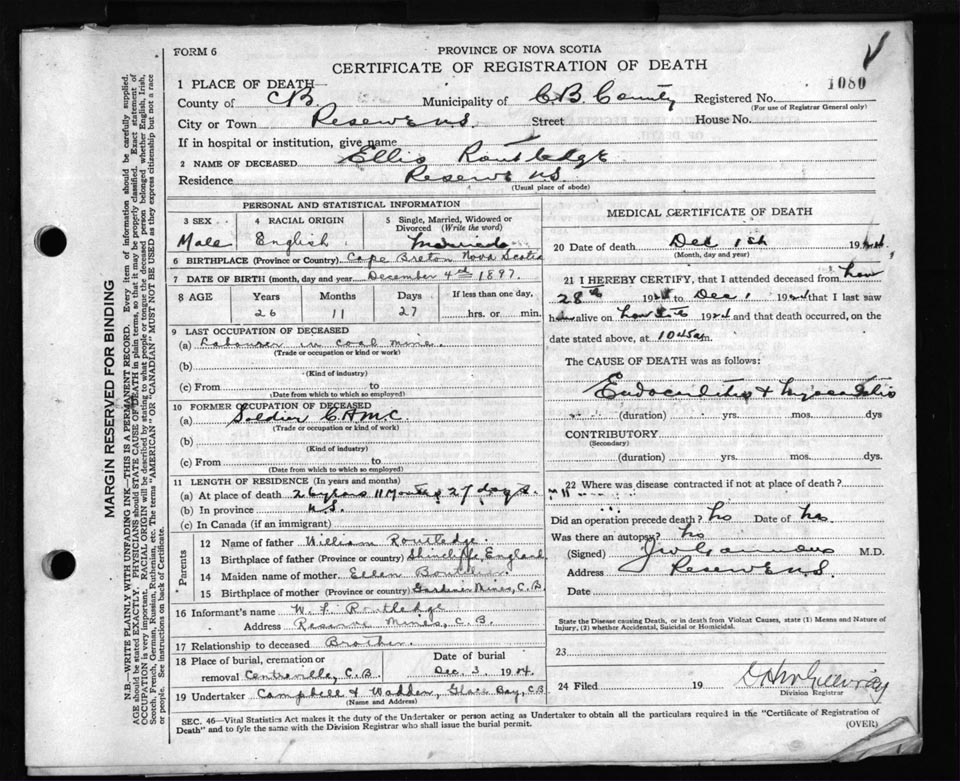 FORM 6
PROVINCE OF NOVA SCOTIA
CERTIFICATE OF REGISTRATION OF DEATH
1080
1 PLACE OF DEATH
County of C.B. Municipality of C.B. County Registered No.
(For use of Registrar General only)
City or Town Reserve N.S. Street House No.
If in hospital or institution, give name
2 NAME OF DECEASED Ellis Routledge
Residence Reserve N.S.
(Usual place of abode)
PERSONAL AND STATISTICAL INFORMATION
3 SEX 4 RACIAL ORIGIN 5 Single, Married, Widowed or Divorced (Write the word)
Male English
6 BIRTHPLACE (Province or Country) Cape Breton Nova Scotia
7 DATE OF BIRTH (month, day and year) December 4th 1897.
8 AGE Years Months Days If less than one day,
26 11 27 hrs. or min.
9 LAST OCCUPATION OF DECEASED
(a) Labourer in coal mine.
(Trade or occupation or kind or work)
(b)
(Kind of industry)
(c) From to
(Date from which to which so employed)
10 FORMER OCCUPATION OF DECEASED
(a) Soldier
(Trade or occupation or kind of work)
(b)
(Kind of industry)
(c) From to
(Date from which to which so employed)
11 LENGTH OF RESIDENCE (In years and months)
(a) At place of death 26 years 11 Months 27 days.
(b) In province N.S.
(c) In Canada (if an immigrant)
Parents
12 Name of father William Routledge
13 Birthplace of father (Province or country) Shincliffe, England
14 Maiden name of mother Ellen
15 Birthplace of mother (Province or country) Gardiner Mines, C.B.
16 Informant's name W. L. Routledge
Address Reserve Mines, C.B.
17 Relationship to deceased Brother
18 Place of burial, cremation or removal Centreville, C.B. Date of burial Dec. 3 1924
19 Undertaker Campbell & Wadden, Glace Bay, C.B.
(Name and Address)
MEDICAL CERTIFICATE OF DEATH
20 Date of death Dec 1st 1924
(Month, day and year)
21 I HEREBY CERTIFY, that I attended deceased from Nov
28th 1924 to Dec 1 1924 that I last saw
h alive on 1924 and that death occurred, on the
date stated above, at 10 45 m.
The CAUSE OF DEATH was as follows:
Endocarditis & Myocarditis
(duration) yrs. mos. dys
CONTRIBUTORY
(Secondary)
(duration) yrs. mos. dys.
22 Where was disease contracted if not at place of death?
Did an operation precede death? No Date of No
Was there an autopsy? No
(Signed) M.D.
Address Reserve N.S.
Date
State the Disease causing Death, or in death from Violent Causes, state (1) Means and Nature of Injury, (2) whether Accidental, Suicidal or Homicidal.
23
24 Filed 19
Division Registrar
SEC. 46—Vital Statistics Act makes it the duty of the Undertaker or person acting as Undertaker to obtain all the particulars required in the "Certificate of Registration of
Death" and to fyle the same with the Division Registrar who shall issue the burial permit.
(OVER)
MARGIN RESERVED FOR BINDING
N.B.—WRITE PLAINLY WITH UNFADING INK—THIS IS A PERMANENT RECORD. Every item of information should be carefully supplied.
AGE should be stated EXACTLY. PHYSICIANS should STATE CAUSE OF DEATH in plain terms, so that it may be properly classified. Exact statement of
OCCUPATION is very important. RACIAL ORIGIN will be described by stating to what people or tongue the deceased person belonged whether English, Irish,
Scotch, French, German, Russian, Ruthenian, etc. The terms "AMERICAN" or "CANADIAN" MUST NOT BE USED as they express citizenship but not a race
or people. See instructions on back of Certificate.